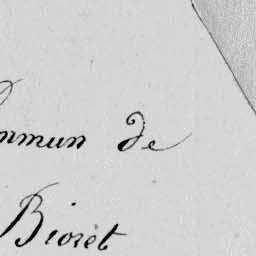 ommun de
Bioret